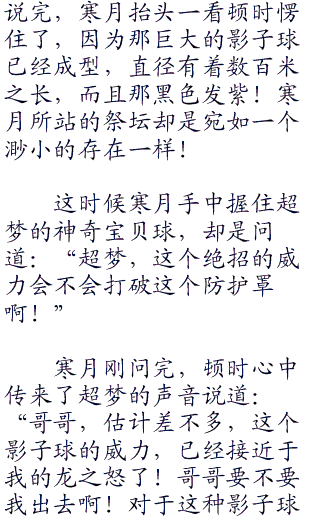 说完，寒月抬头一看顿时愣
住了，因为那巨大的影子球
已经成型，直径有着数百米
之长，而且那黑色发紫！寒
月所站的祭坛却是宛如一个
渺小的存在一样！
这时候寒月手中握住超
梦的神奇宝贝球，却是问
道：“超梦，这个绝招的威
力会不会打破这个防护罩
啊！”
寒月刚问完，顿时心中
传来了超梦的声音说道：
“哥哥，估计差不多，这个
影子球的威力，已经接近于
我的龙之怒了！哥哥要不要
我出去啊！对于这种影子球